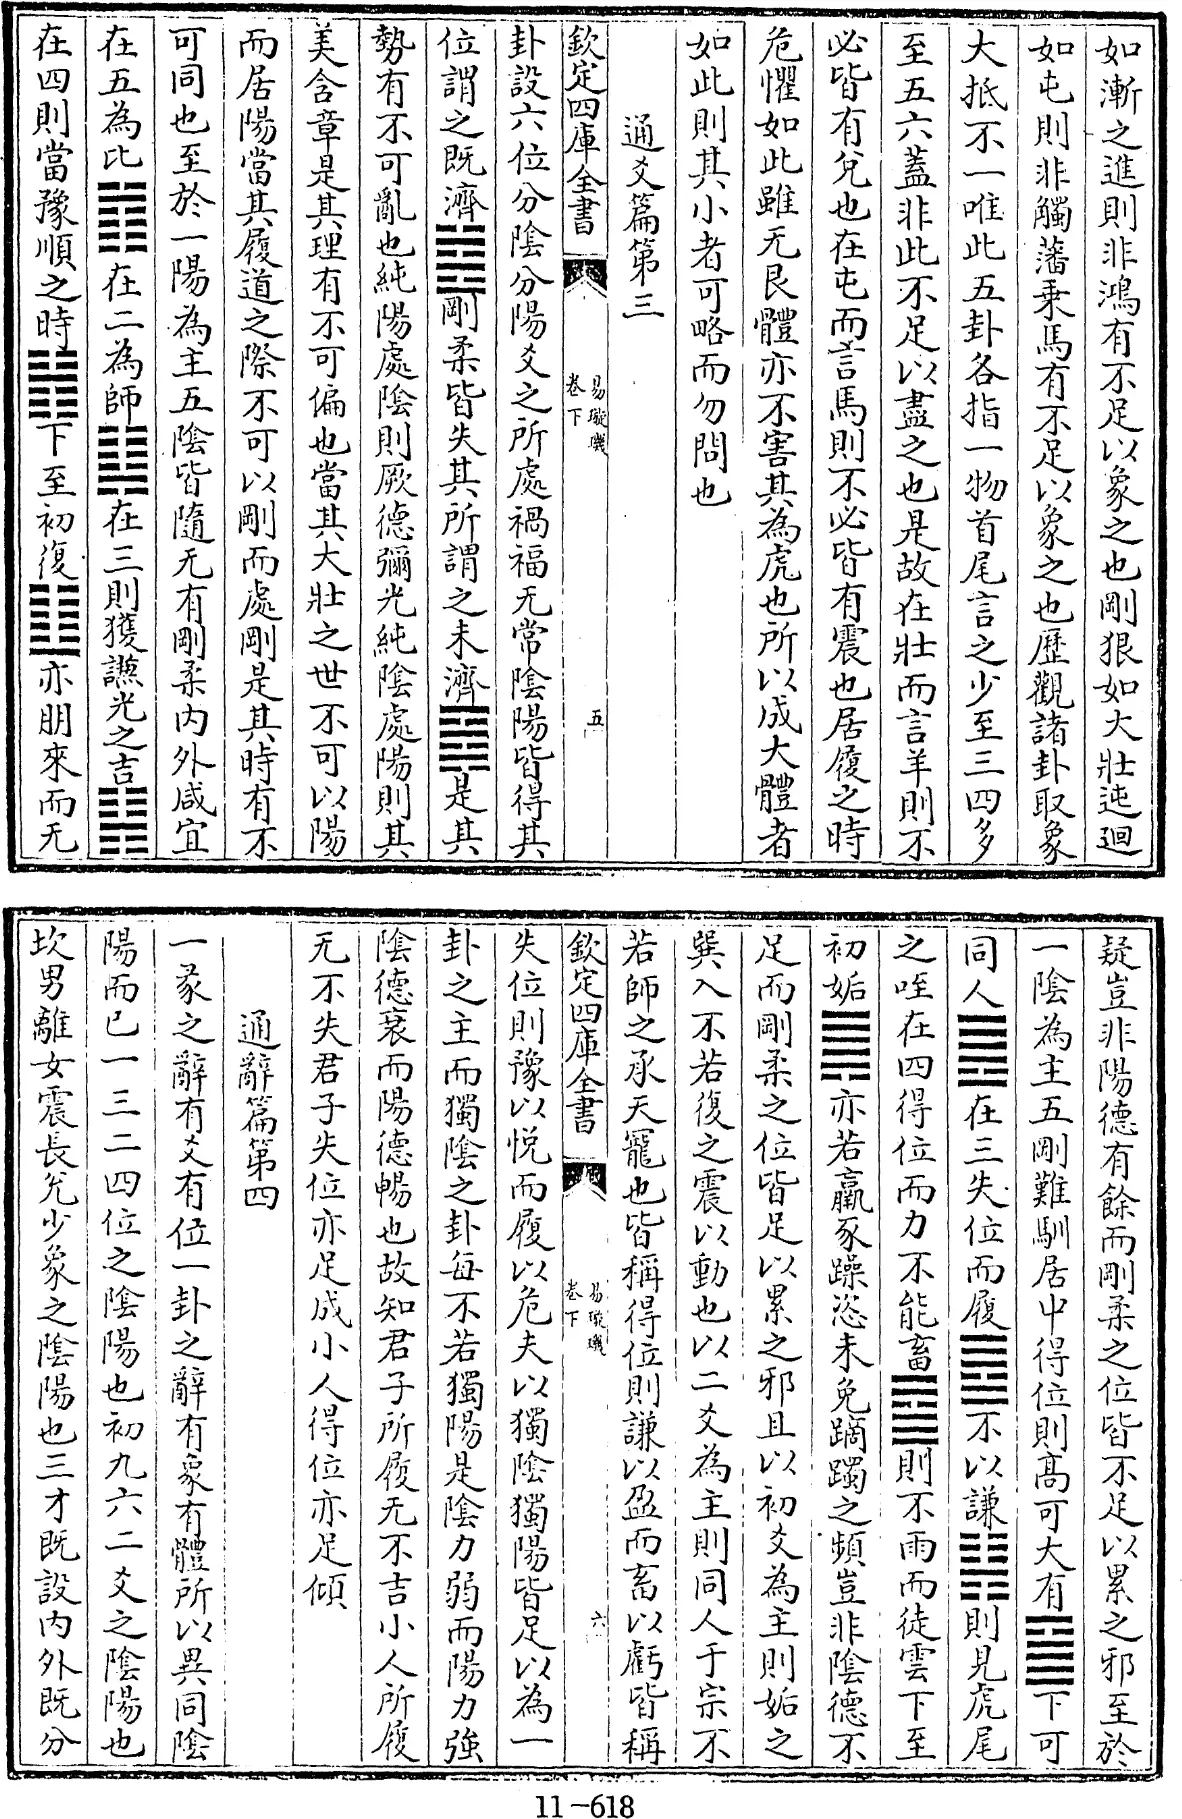 如漸之進則非鴻有不足以象之也剛狠如大壯迍迴
如屯則非觸藩乗馬有不足以象之也歷觀諸卦取象
大抵不一唯此五卦各指一物首尾言之少至三四多
至五六蓋非此不足以盡之也是故在壯而言羊則不
必皆有兌也在屯而言馬則不必皆有震也居履之時
危懼如此雖无艮體亦不害其為虎也所以成大體者
如此則其小者可略而勿問也
通爻篇第三
欽定四庫全書
易璇璣
卷下
五
卦設六位分陰分陽爻之所處禍福无常陰陽皆得其
位謂之既濟䷾剛柔皆失其所謂之未濟䷿是其
勢有不可亂也純陽處陰則厥德彌光純陰處陽則其
美含章是其理有不可偏也當其大壯之世不可以陽
而居陽當其履道之際不可以剛而處剛是其時有不
可同也至於一陽為主五陰皆隨无有剛柔内外咸宜
在五為比䷇在二為師䷆在三則獲謙光之吉䷎
在四則當豫順之時䷏下至初復䷗亦朋來而无
疑豈非陽德有餘而剛柔之位皆不足以累之邪至於
一陰為主五剛難馴居中得位則髙可大有䷍下可
同人䷌在三失位而履䷉不以謙䷎則見虎尾
之咥在四得位而力不能畜䷈則不雨而徒雲下至
初姤䷫亦若羸豕躁恣未免蹢躅之頻豈非陰德不
足而剛柔之位皆足以累之邪且以初爻為主則姤之
巽入不若復之震以動也以二爻為主則同人于宗不
若師之承天寵也皆稱得位則謙以盈而畜以虧皆稱
欽定四庫全書
易璇璣
卷下
六
失位則豫以悅而履以危夫以獨陰獨陽皆足以為一
卦之主而獨陰之卦每不若獨陽是陰力弱而陽力強
陰德衰而陽德暢也故知君子所履无不吉小人所履
无不失君子失位亦足成小人得位亦足傾
通辭篇第四
一彖之辭有爻有位一卦之辭有象有體所以異同陰
陽而已一三二四位之陰陽也初九六二爻之陰陽也
坎男離女震長兌少象之陰陽也三才既設内外既分
11-618